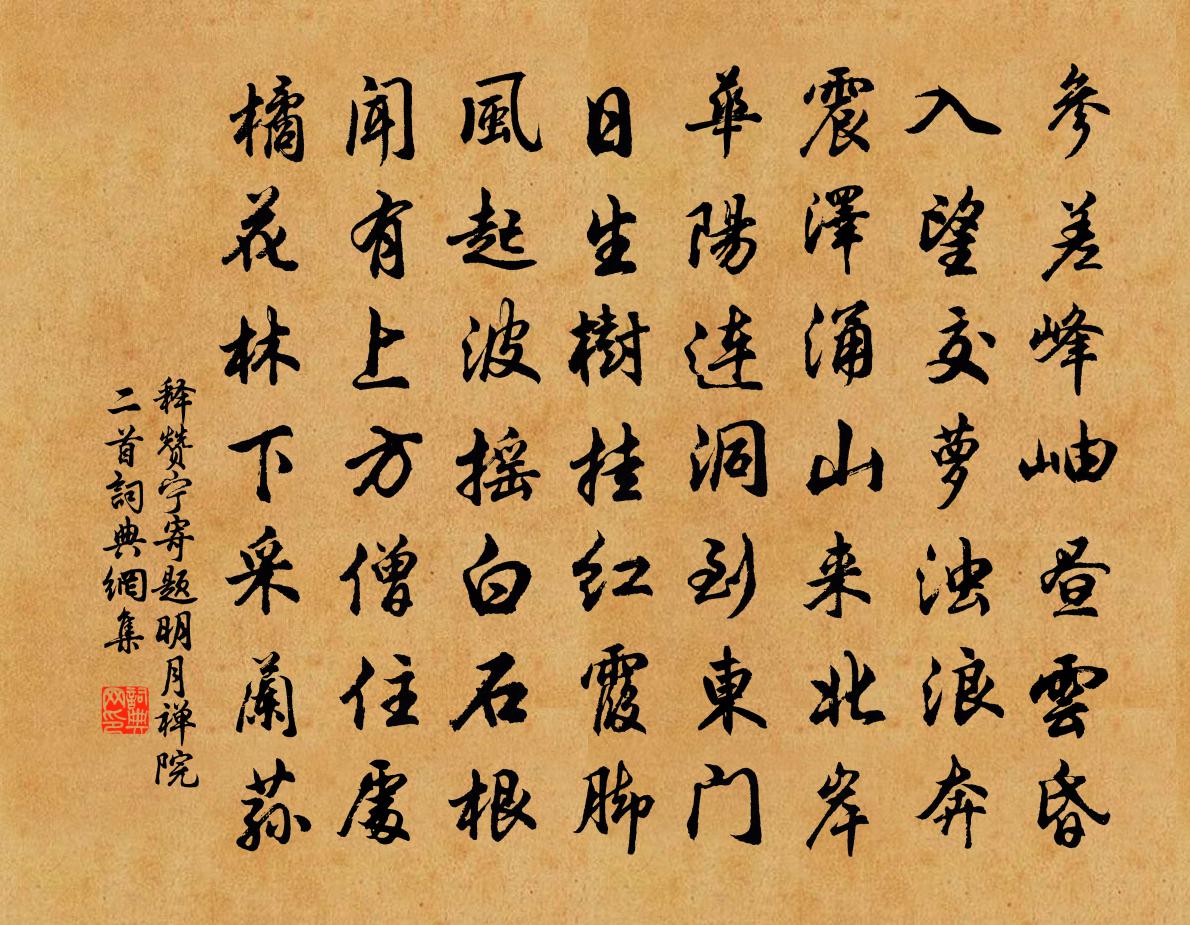 參差峰岫昼雲昏
入望交萝浊浪奔
震澤涌山来北岸
華陽连洞到東门
日生樹挂红霞脚
風起波摇白石根
聞有上方僧住處
橘花林下采蘭荪
释赞宁寄题明月禅院
二首詞典網集
詞典
网印